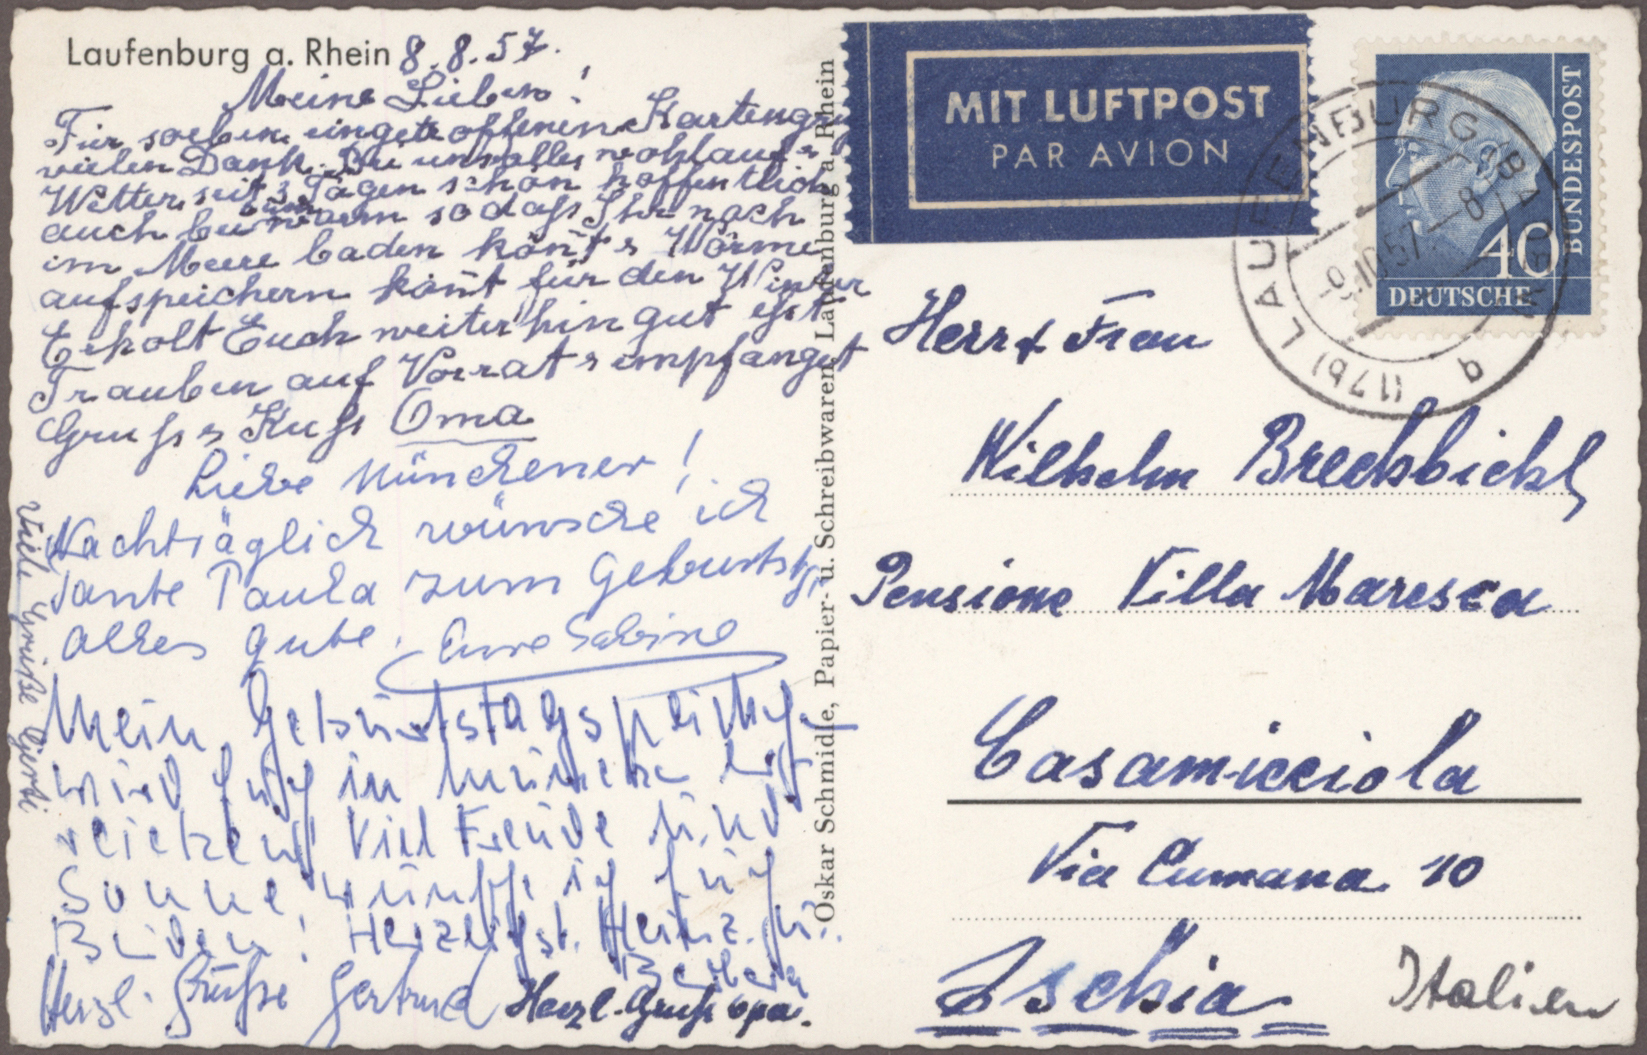 Laufenburg a. Rhein 8.8.57.
Meine Lieben!
Für soeben eingetroffenen Kartengruß
vielen Dank. Bei uns alles wohlauf
Wetter seit 3 Tagen schön hoffentlich
auch bei so daß Ihr noch
im Meere baden könnt & Wärme
aufspeichern könnt für den Winter
Erholt Euch weiterhin gut eßt
Trauben auf Vorrat & empfanget
Gruß & Kuß Oma
Liebe Münchener!
Nachträglich wünsche ich
Tante Paula zum Geburtstg.
alles gute. Eure Sabine
Mein Geburtstagspäckchen
wird Euch in München
Viel Freude und
Sonne, wünsche ich Euch
Beiden! Herzlichst. Heinz. jr.
Herzl. Grüße Gertrud
Herzl. Gruß Opa.
Viele Grüße
Oskar Schmidle, Papier- u. Schreibwaren, Laufenburg a. Rhein
MIT LUFTPOST
PAR AVION
DEUTSCHE BUNDESPOST
40
(17b) LAUFENBURG (BADEN)
q
Herr & Frau
Wilhelm Brechbichl
Pensione Villa Maresca
Casamicciola
Via Cumana 10
Ischia Italien